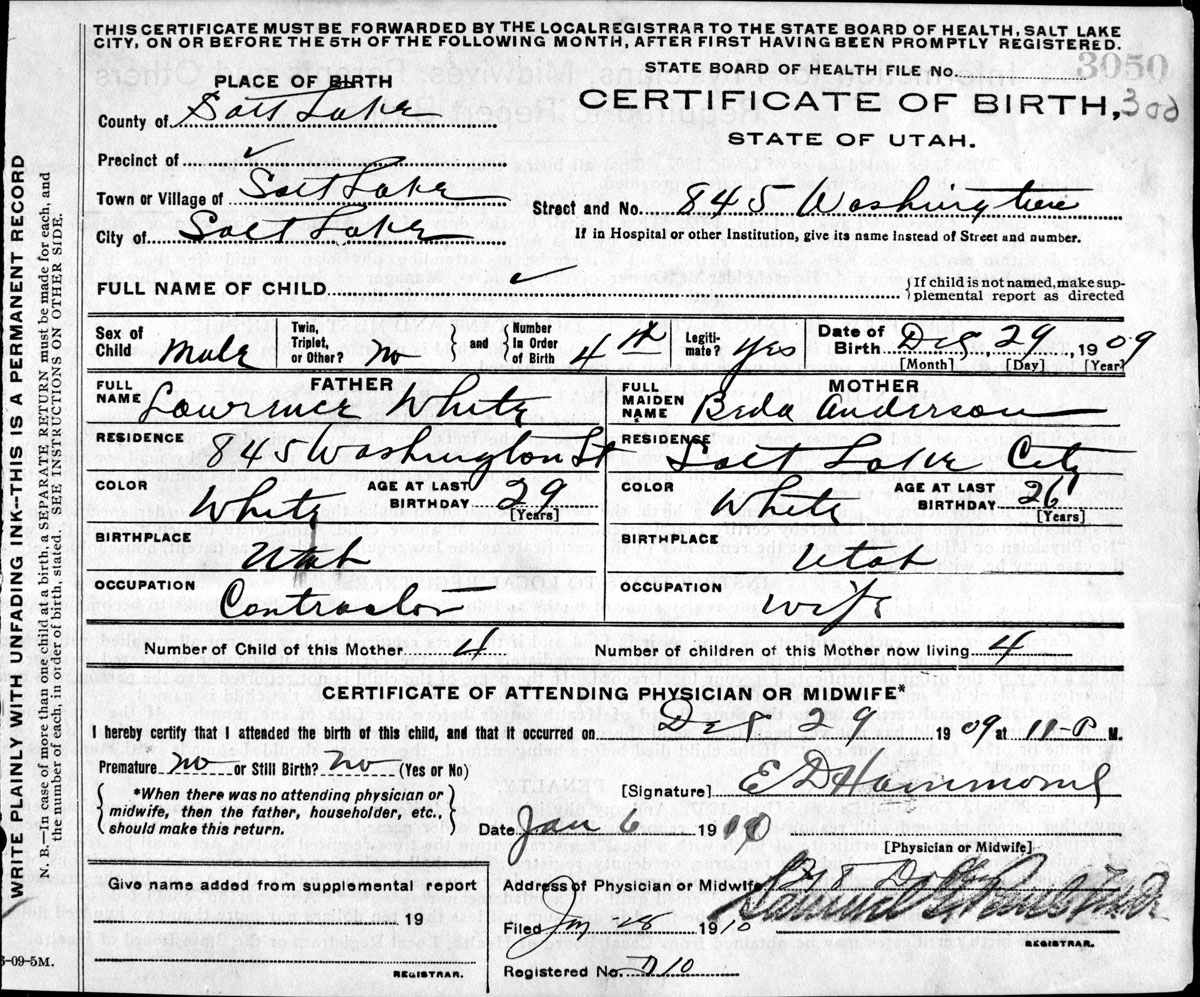 THIS CERTIFICATE MUST BE FORWARDED BY THE LOCAL REGISTRAR TO THE STATE BOARD OF HEALTH, SALT LAKE
CITY, ON OR BEFORE THE 5TH OF THE FOLLOWING MONTH, AFTER FIRST HAVING BEEN PROMPTLY REGISTERED.
STATE BOARD OF HEALTH FILE No. 3050
PLACE OF BIRTH
CERTIFICATE OF BIRTH,
STATE OF UTAH.
County of Salt Lake
Precinct of ✓
Town or Village of Salt Lake
Street and No. 845 Washington
City of Salt Lake
If in Hospital or other Institution, give its name instead of Street and number.
FULL NAME OF CHILD ✓ {If child is not named, make sup-
plemental report as directed
Sex of Child Male Twin, Triplet, or Other? No } and { Number In Order of Birth 4th Legiti-mate? Yes Date of Birth Dec, 29, 1909
[Month] [Day] [Year]
FATHER MOTHER
FULL NAME Lawrence White FULL MAIDEN NAME Beda Anderson
RESIDENCE 845 Washington St RESIDENCE Salt Lake City
COLOR White AGE AT LAST BIRTHDAY 29 [Years] COLOR White AGE AT LAST BIRTHDAY 26 [Years]
BIRTHPLACE Utah BIRTHPLACE Utah
OCCUPATION Contractor OCCUPATION Wife
Number of Child of this Mother 4 Number of children of this Mother now living 4
CERTIFICATE OF ATTENDING PHYSICIAN OR MIDWIFE*
I hereby certify that I attended the birth of this child, and that it occurred on Dec 29 1909 at 11-P M.
Premature no or Still Birth? no (Yes or No)
[Signature] E D Hammond
{ *When there was no attending physician or
midwife, then the father, householder, etc.,
should make this return. }
Date Jan 6 1910
[Physician or Midwife]
Give name added from supplemental report
Address of Physician or Midwife
19
Filed Jan 28 1910
REGISTRAR.
REGISTRAR.
Registered No. 710
3-09-5M.
WRITE PLAINLY WITH UNFADING INK--THIS IS A PERMANENT RECORD
N. B.—In case of more than one child at a birth, a SEPARATE RETURN must be made for each, and
the number of each, in order of birth, stated. SEE INSTRUCTIONS ON OTHER SIDE.